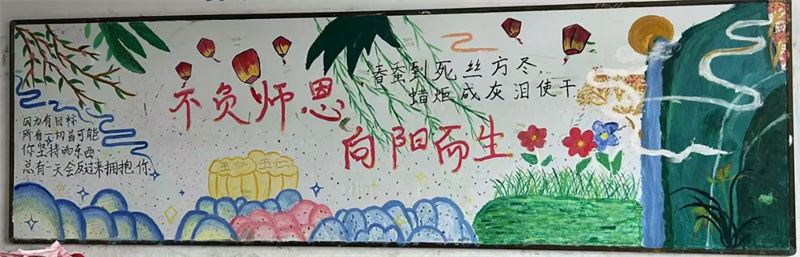 不负师恩
向阳而生
春蚕到死丝方尽,
蜡炬成灰泪使干
因为有目标
所有一切皆可能
你坚持的东西
总有一天会反过来拥抱你.
五仁 五仁